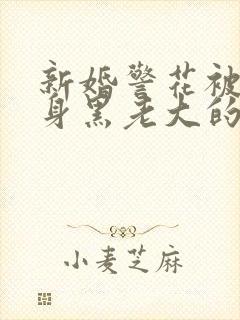 新婚警花被
身黑老大的
小麦芝麻